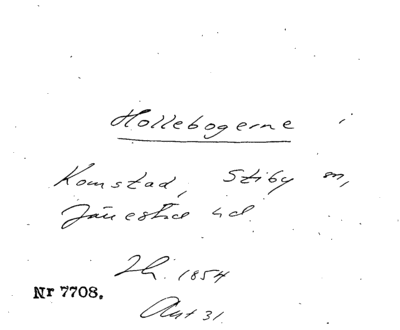 Hollebogerne i
Komstad, Stiby sn,
Järrestad hd
Ih. 1854
Nr 7708.
Ant 31